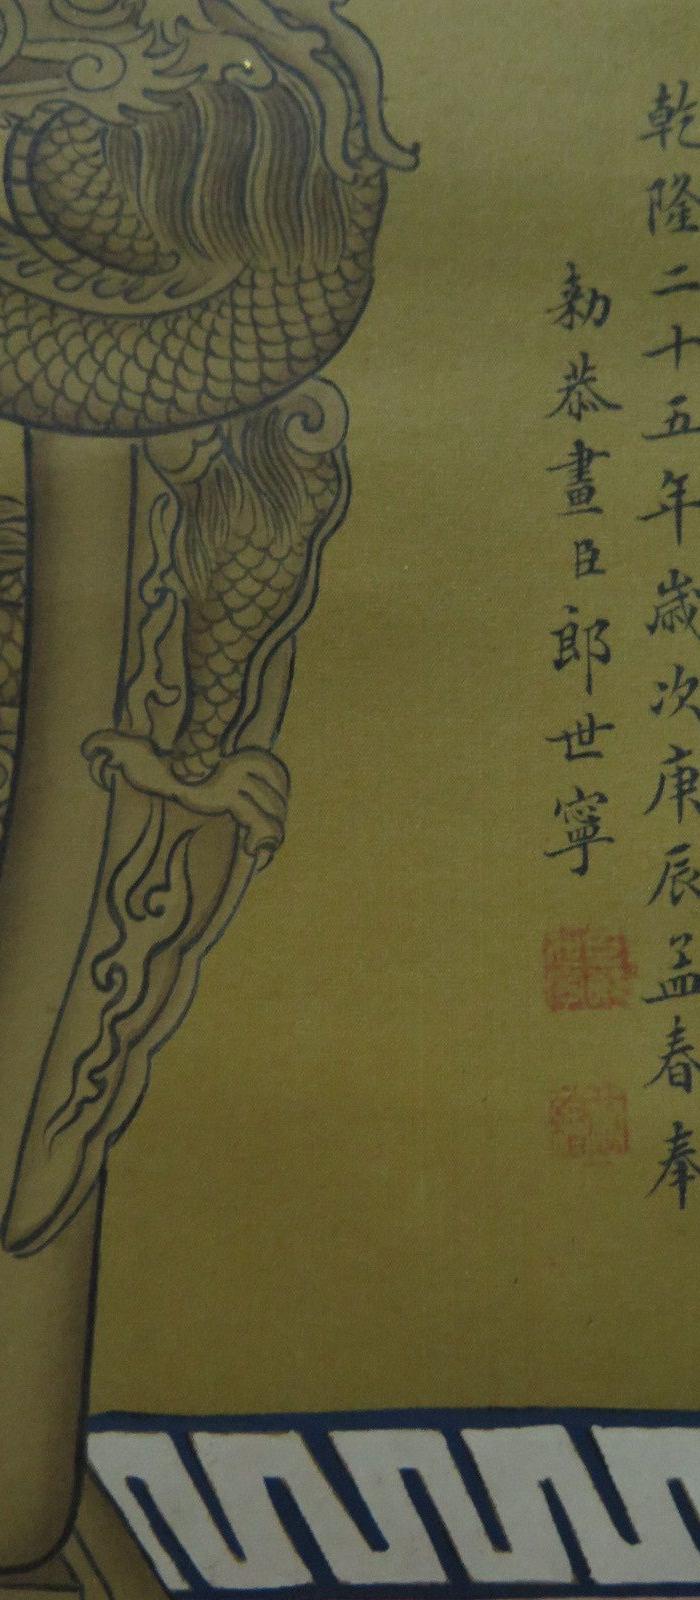 乾隆二十五年歲次庚辰孟春奉
勅恭畫臣郎世寧